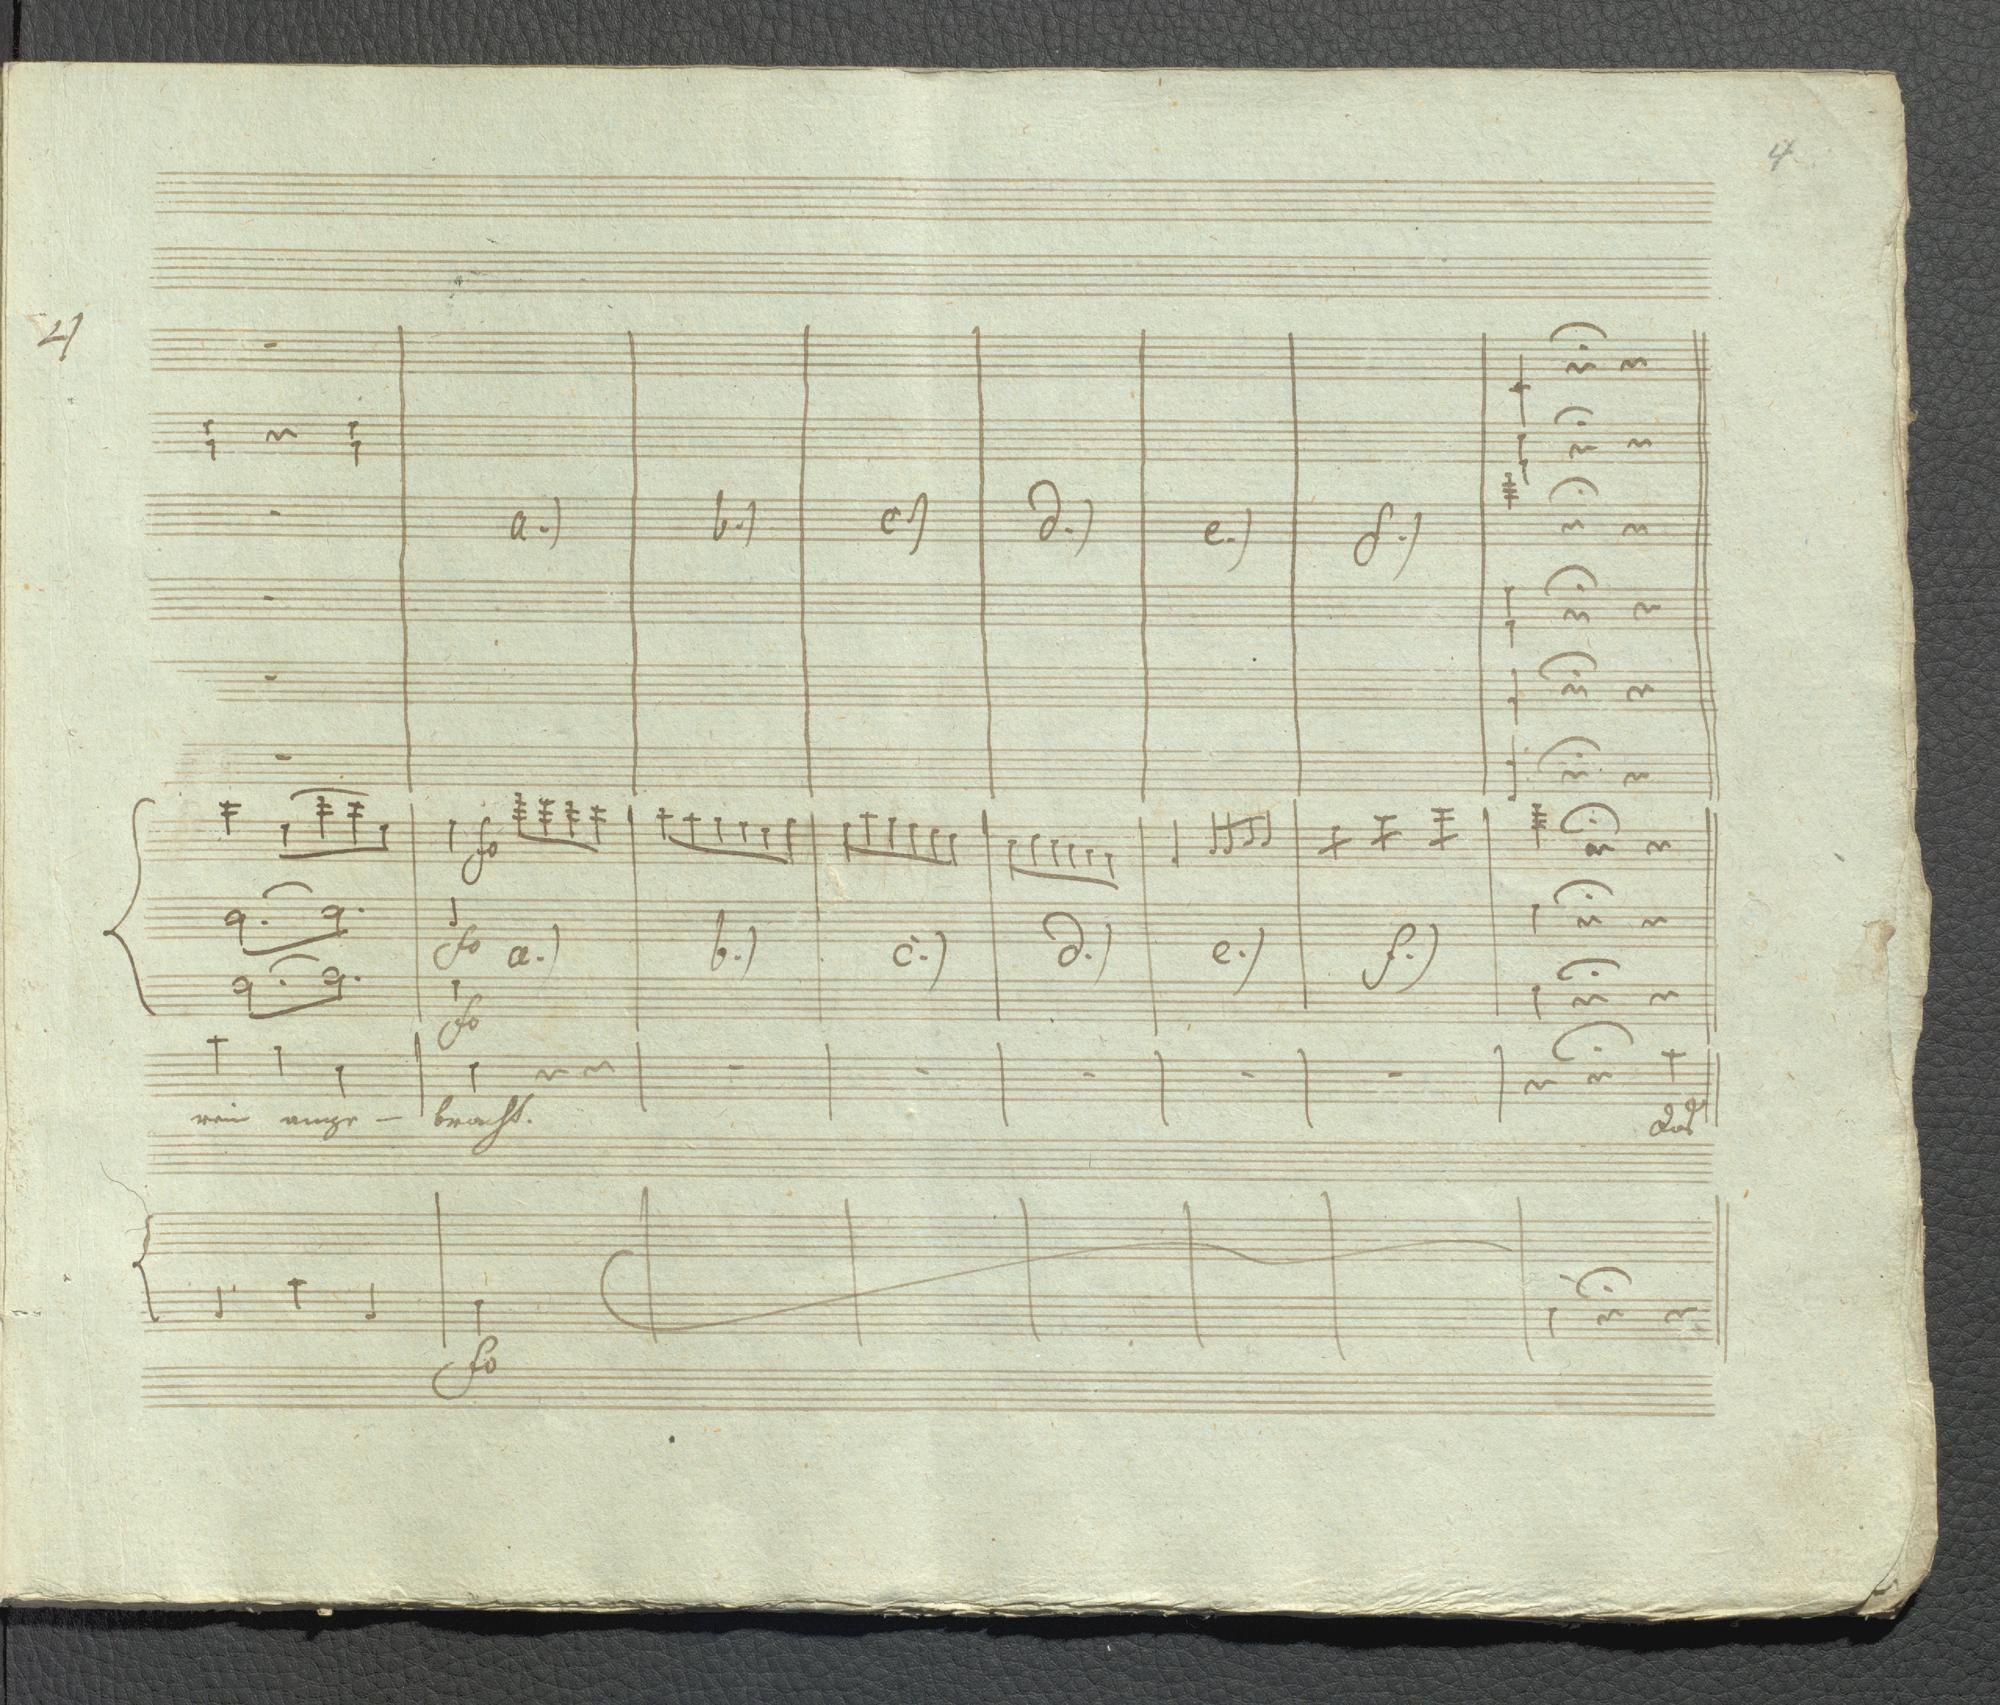 4
4
a.) b.) c.) d.) e.) f.)
fo
fo a.) b.) c.) d.) e.) f.)
fo
rein ange - bracht. Das
fo